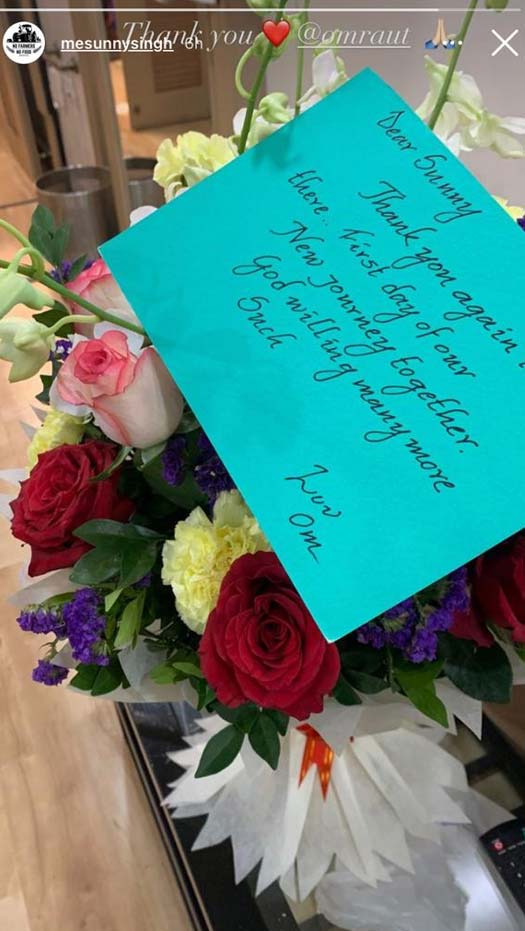 Thank you ❤️ @omraut 🙏🏼
mesunnysingh 6h
NO FARMERS
NO FOOD
Dear Sunny
Thank you again
there. First day of our
New journey together.
God willing many more
Such
Luv
Om